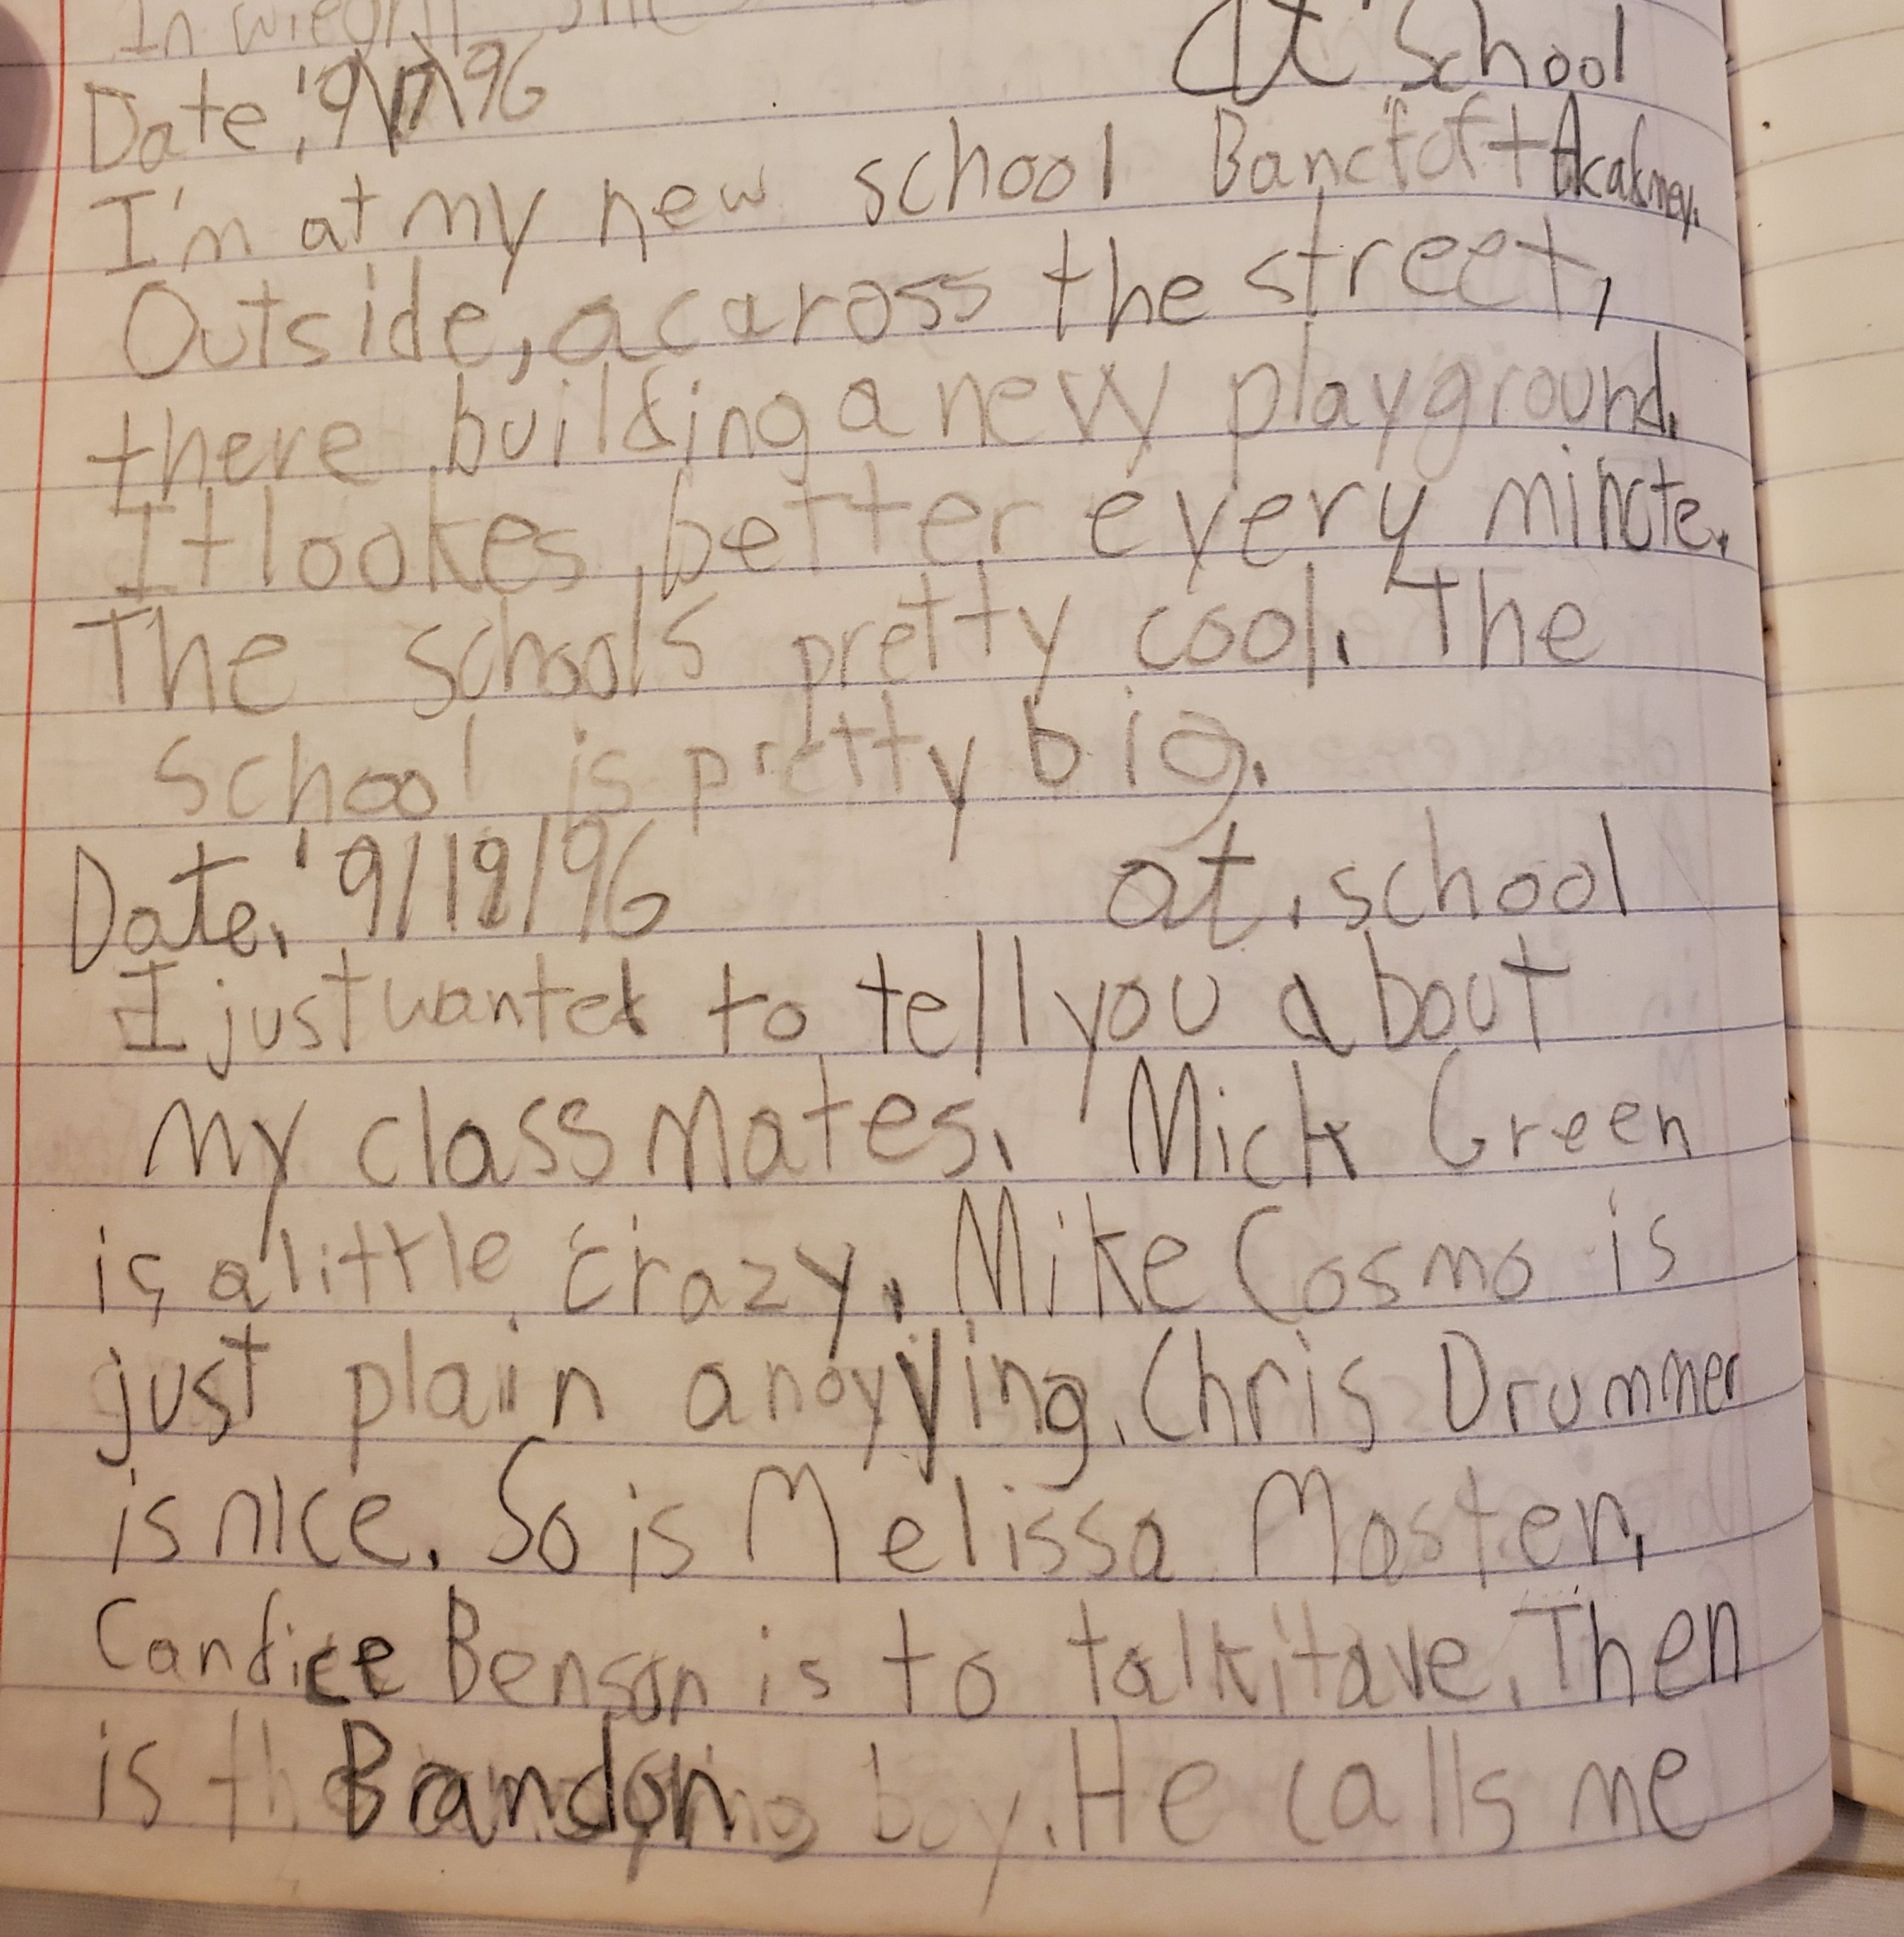 In
Date, '9\17\96 At School
I'm at my new school Bancroft Akadmey.
Outside, acaross the street,
there building a new playground.
It lookes better every minute.
The school's pretty cool. The
school is pretty big.
Date, '9/19/96 at school
I just wanted to tell you about
my class mates. Mick Green
is a little crazy. Mike Cosmo is
just plain anoyying. Chris Drummer
is nice. So is Melissa Master.
Candice Benson is to talkitave. Then
is Brandon. He calls me